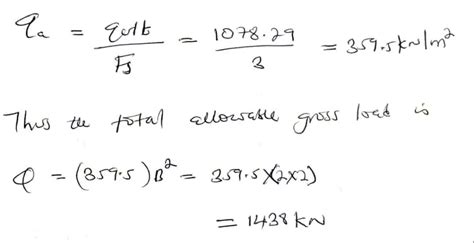 qa = qult/Fs = 1078.29/3 = 359.5 kN/m²
Thus the total allowable gross load is
Q = (359.5)B² = 359.5 X(2x2)
= 1438 kN